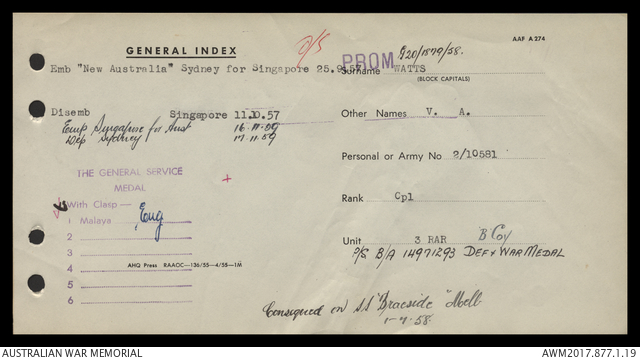 AAF A274
GENERAL INDEX
P/S
PROM G20/1879/58.
Emb "New Australia" Sydney for Singapore 25.9.57
Surname WATTS
(BLOCK CAPITALS)
Disemb Singapore 11.10.57
Other Names V. A.
Emp Singapore for Aust 16.11.59
Dep Sydney 17.11.59
Personal or Army No 2/10581
THE GENERAL SERVICE
MEDAL
With Clasp —
Rank Cpl
1 Malaya Eng
2
Unit 3 RAR B Coy
3
P/S B/A 14971293 DEF & WAR MEDAL
4
AHQ Press RAAOC—136/55—4/58—1M
5
6
Consigned on S.S "Braeside" Melb
1-7-58.
AUSTRALIAN WAR MEMORIAL
AWM2017.877.1.19